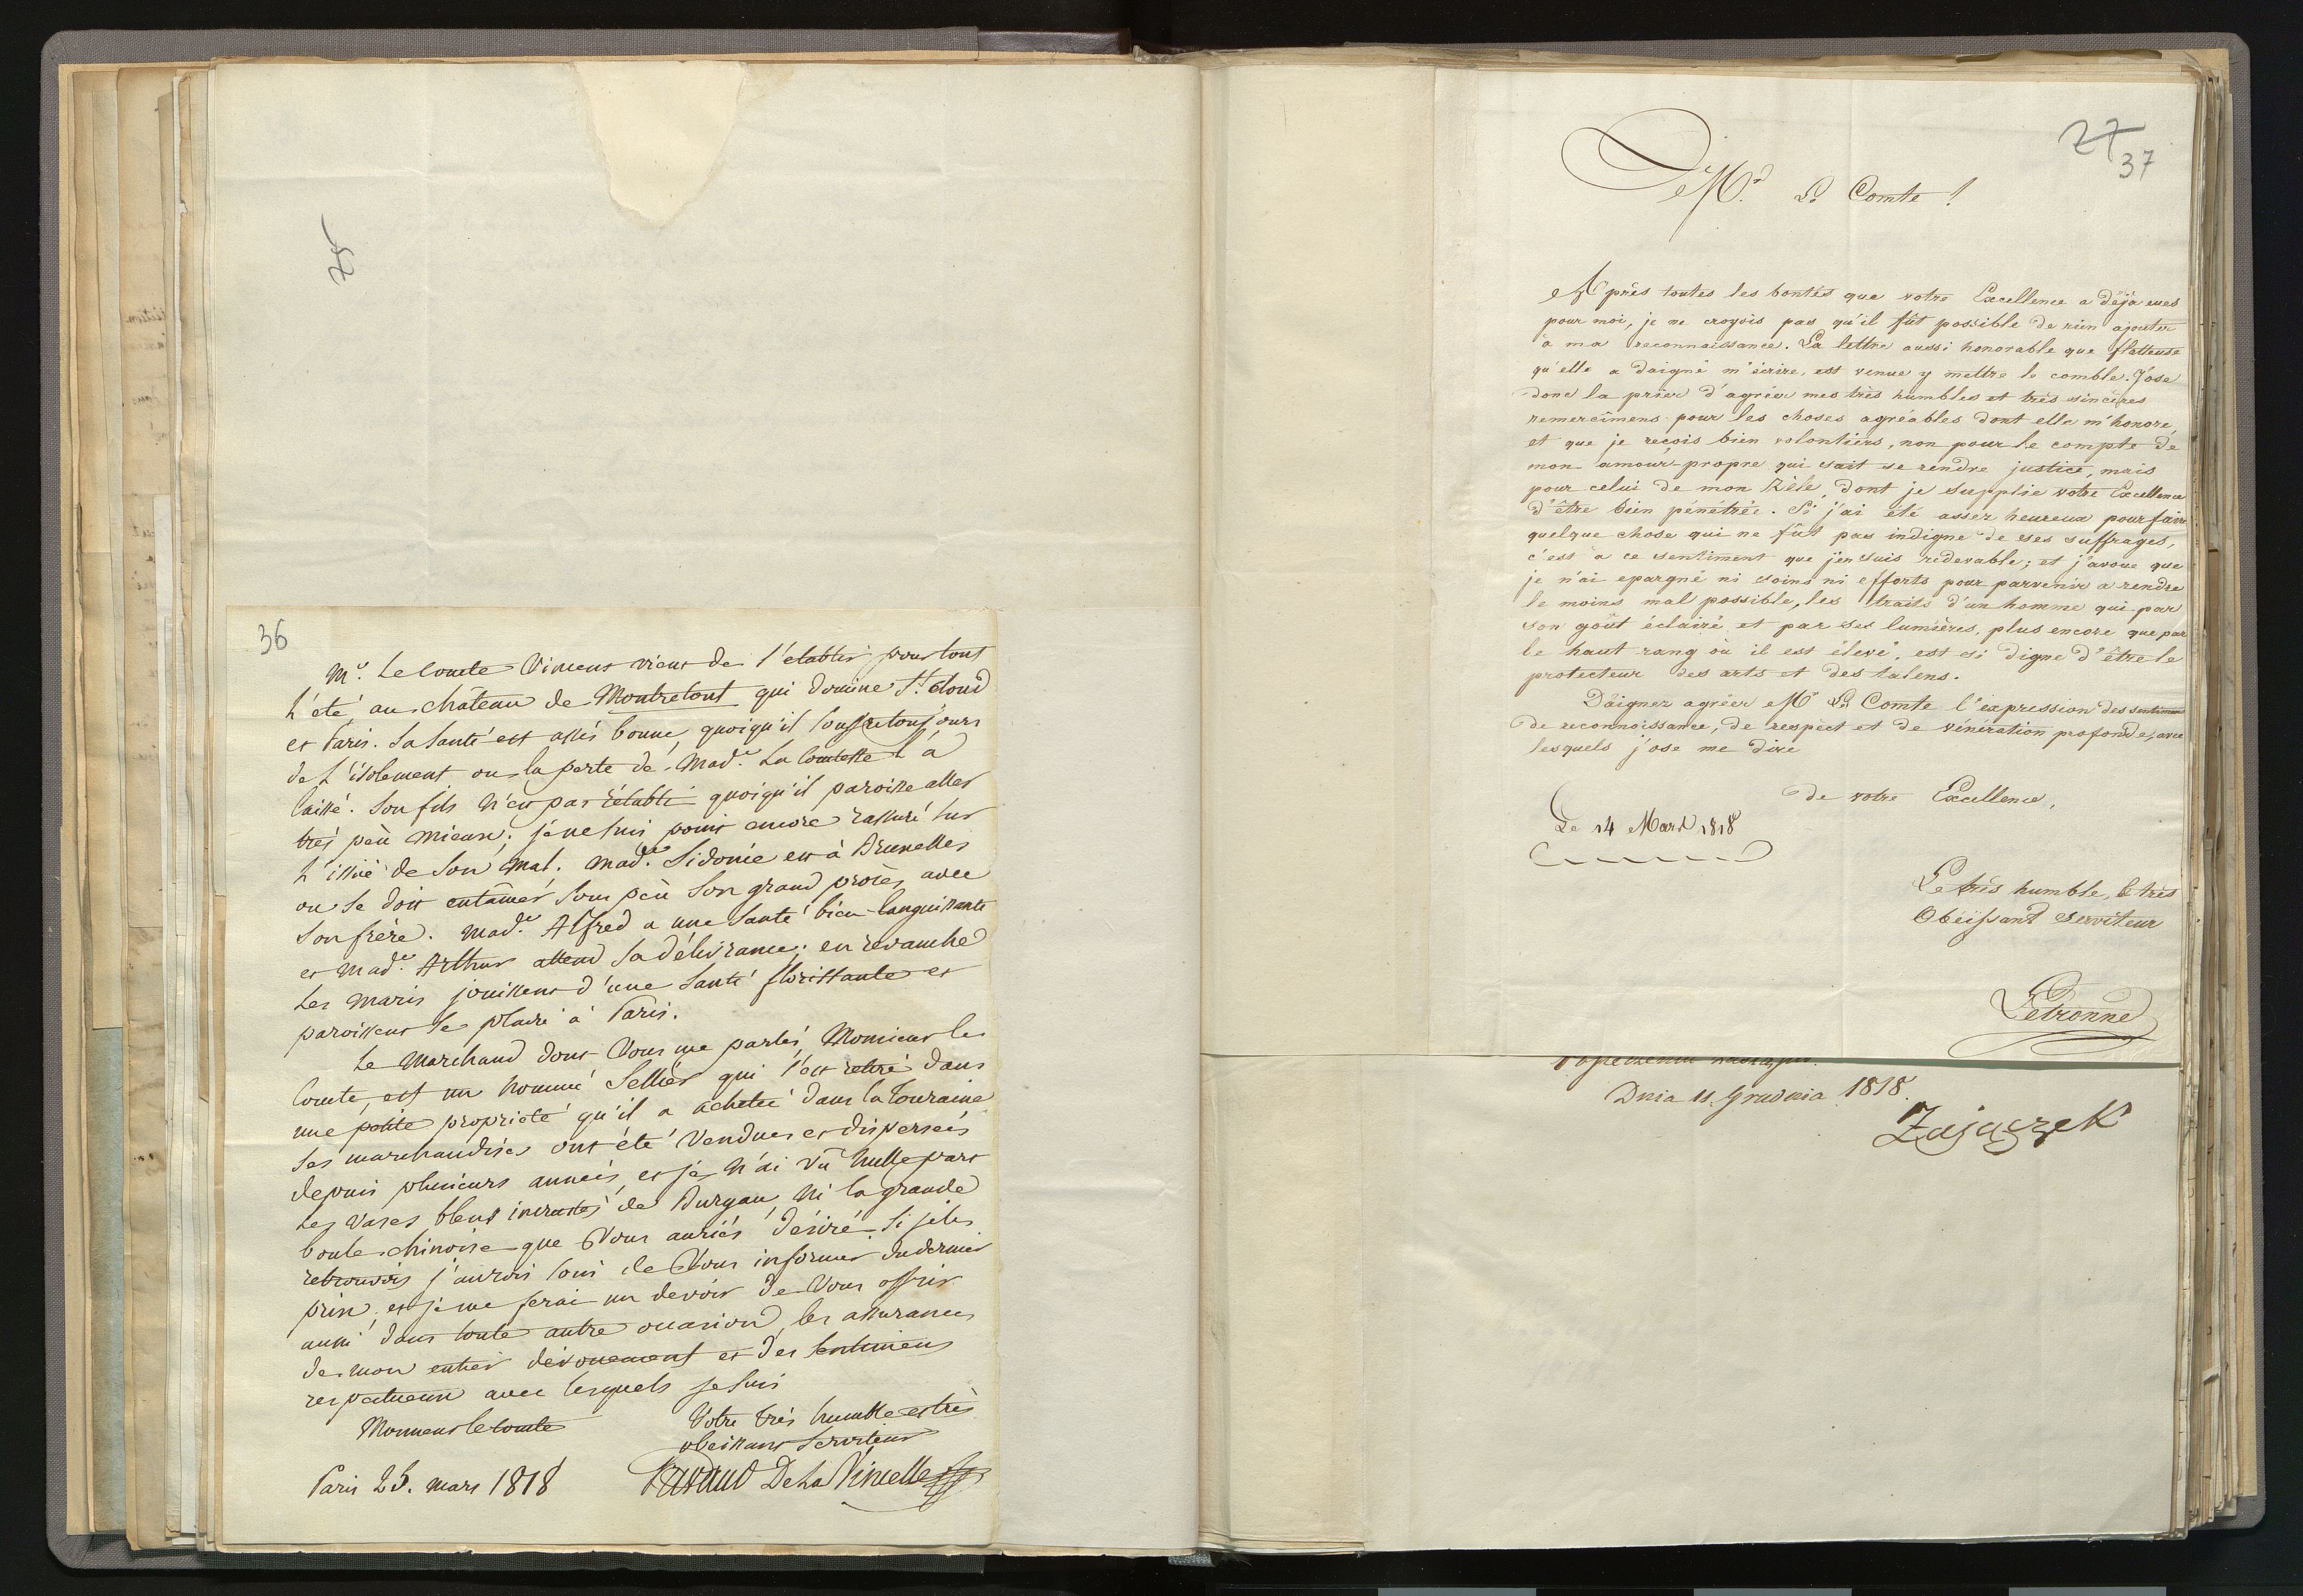 25
36
Mr. Le Comte Vincent vient de s'etablir pour tout
l'été, au château de Montretout qui domine St. Cloud
et Paris. Sa Santé est assés bonne, quoiqu'il souffre toujours
de l'isolement ou la perte de Made. La Comtesse l'a
laissé. Son fils n'est pas rétabli quoiqu'il paroisse aller
très peù mieux; je ne suis point encore rassuré sur
l'issüe de son mal. Made. Sidonie est à Bruxelles
ou se doit entâmer sous peù son grand procès avec
son frère. Made. Alfred a une Santé bien languissante
et Made. Arthur attend sa délivrance; en revanche
les maris jouissent d'une Santé florissante et
paroissent se plaire à Paris.
Le Marchand dont Vous me parlés, Monsieur le
Comte, est un nommé Sellier qui s'est retiré dans
une petite proprieté qu'il a achetée dans la Touraine
Ses marchandises ont été vendues et dispersées
depuis plusieurs années, et je n'ai vû nulle part
les vases bleus incrustés de Burgau, ni la grande
boule chinoise que Vous auriés désiré. Si je les
retrouvois j'aurois soin de Vous informer du dernier
prix, et je me ferai un devoir de Vous offrir
aussi dans toute autre occasion, les assurances
de mon entier dévouement et des sentimens
respectueux avec lesquels je suis
Monsieur le Comte
Votre très humble et très
obeissant Serviteur
Paris 25. mars 1818
De La Vincelle
27
37
Mr. Le Comte!
Après toutes les bontés que votre Excellence a déjà eues
pour moi, je ne croyois pas qu'il fût possible de rien ajouter
à ma reconnaissance. La lettre aussi honorable que flatteuse
qu'elle a daigné m'écrire, est venue y mettre le comble. J'ose
donc la prier d'agréer mes très humbles et très sincères
remercîmens pour les choses agréables dont elle m'honore,
et que je reçois bien volontiers, non pour le compte de
mon amour-propre qui sait se rendre justice, mais
pour celui de mon zèle, dont je supplie votre Excellence
d'être bien pénétrée. Si j'ai été assez heureux pour faire
quelque chose qui ne fût pas indigne de ses suffrages,
c'est à ce sentiment que j'en suis redevable; et j'avoue que
je n'ai epargné ni soins ni efforts pour parvenir a rendre
le moins mal possible, les traits d'un homme qui par
son goût éclairé et par ses lumières, plus encore que par
le haut rang où il est élevé, est si digne d'être le
protecteur des arts et des talens.
Daignez agréer Mr Le Comte l'expression des sentimens
de reconnoissance, de respect et de vénération profonde, avec
lesquels j'ose me dire
de votre Excellence,
Le 14 Mars 1818
Le très humble, le très
Obéissant Serviteur
Letronne
Dnia 11. Grudnia 1818.
Zajączek